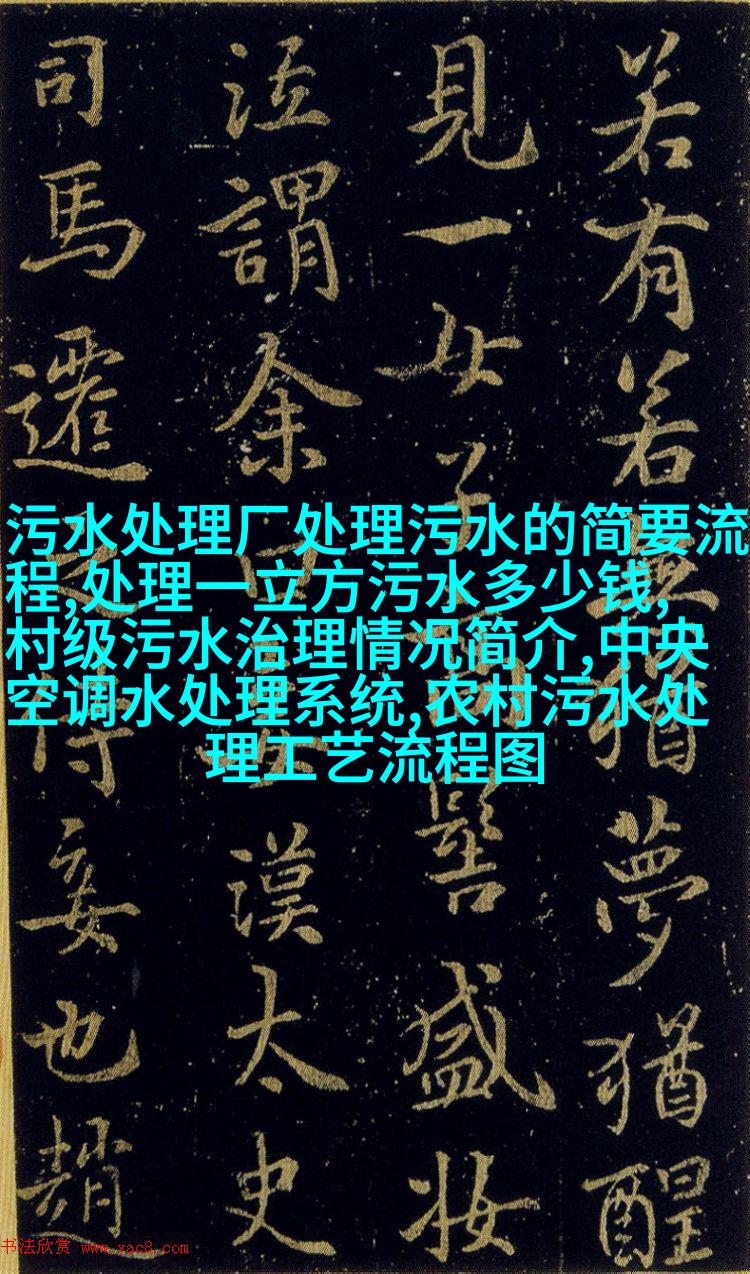 若有若無猶夢猶醒
見一女子高髻盛妝
泣謂余曰妾漢太史
司馬遷之侍妾也趙
污水处理厂处理污水的简要流
程,处理一立方污水多少钱,
村级污水治理情况简介,中央
空调水处理系统,农村污水处
理工艺流程图
书法欣赏 www.yac8.com